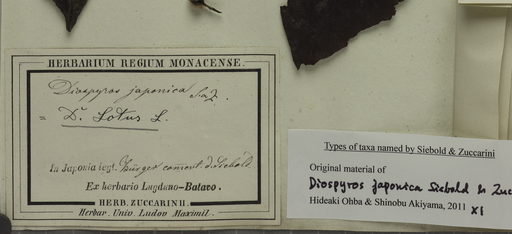 HERBARIUM REGIUM MONACENSE.
Diospyros japonica S. & Z.
= D. Lotus L.
In Japonia legt. Bürger comm. d. Siebold
Ex herbario Lugduno-Batavo.
HERB. ZUCCARINII.
Herbar. Univ. Ludov. Maximil.
Types of taxa named by Siebold & Zuccarini
Original material of
Diospyros japonica Siebold & Zuc
Hideaki Ohba & Shinobu Akiyama, 2011 XI